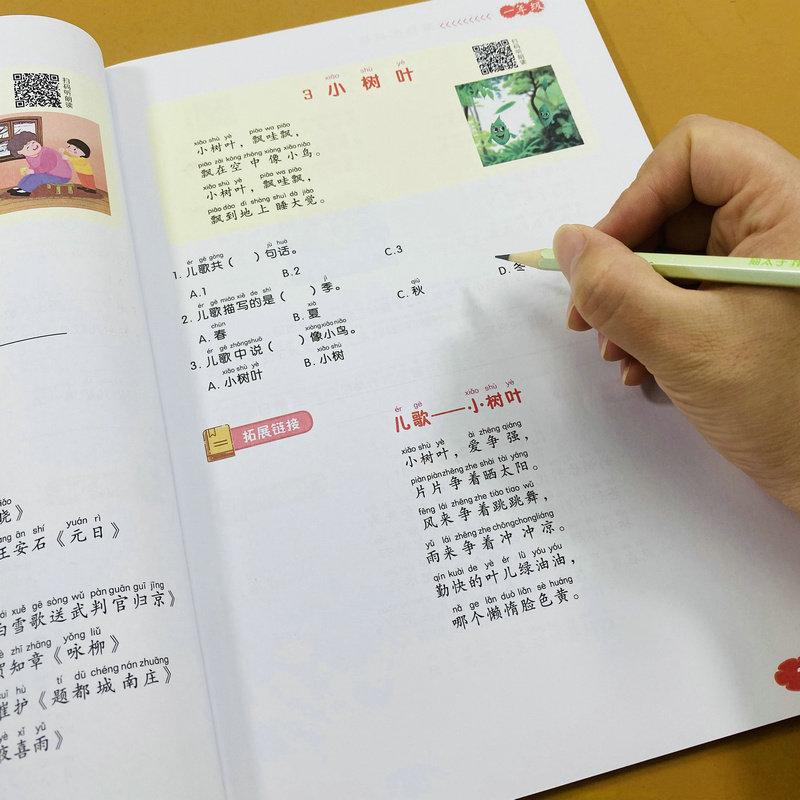 扫码听朗读
ǎo
晓》
āng ān shí yuán rì
王安石《元日》
ái xuě gē sòng wǔ pàn guān guī jīng
白雪歌送武判官归京》
è zhī zhāng yǒng liǔ
贺知章《咏柳》
uī hù tí dū chéng nán zhuāng
崔护《题都城南庄》
yè xǐ yǔ
夜喜雨》
一年级
扫码听朗读
xiǎo shù yè
3 小树叶
xiǎo shù yè piāo wa piāo
小树叶，飘哇飘，
piāo zài kōng zhōng xiàng xiǎo niǎo
飘在空中像小鸟。
xiǎo shù yè piāo wa piāo
小树叶，飘哇飘，
piāo dào dì shàng shuì dà jiào
飘到地上睡大觉。
ér gē gòng jù huà
1. 儿歌共（ ）句话。
A.1 B.2 C.3
ér gē miáo xiě de shì jì
2. 儿歌描写的是（ ）季。
chūn xià qiū
A. 春 B. 夏 C. 秋 D. 冬
ér gē zhōng shuō xiàng xiǎo niǎo
3. 儿歌中说（ ）像小鸟。
xiǎo shù yè xiǎo shù
A. 小树叶 B. 小树
拓展链接
ér gē xiǎo shù yè
儿歌——小树叶
xiǎo shù yè ài zhēng qiáng
小树叶，爱争强，
piàn piàn zhēng zhe shài tài yáng
片片争着晒太阳。
fēng lái zhēng zhe tiào tiao wǔ
风来争着跳跳舞，
yǔ lái zhēng zhe chōng chong liáng
雨来争着冲冲凉。
qín kuài de yè ér lǜ yóu yóu
勤快的叶儿绿油油，
nǎ ge lǎn duò liǎn sè huáng
哪个懒惰脸色黄。